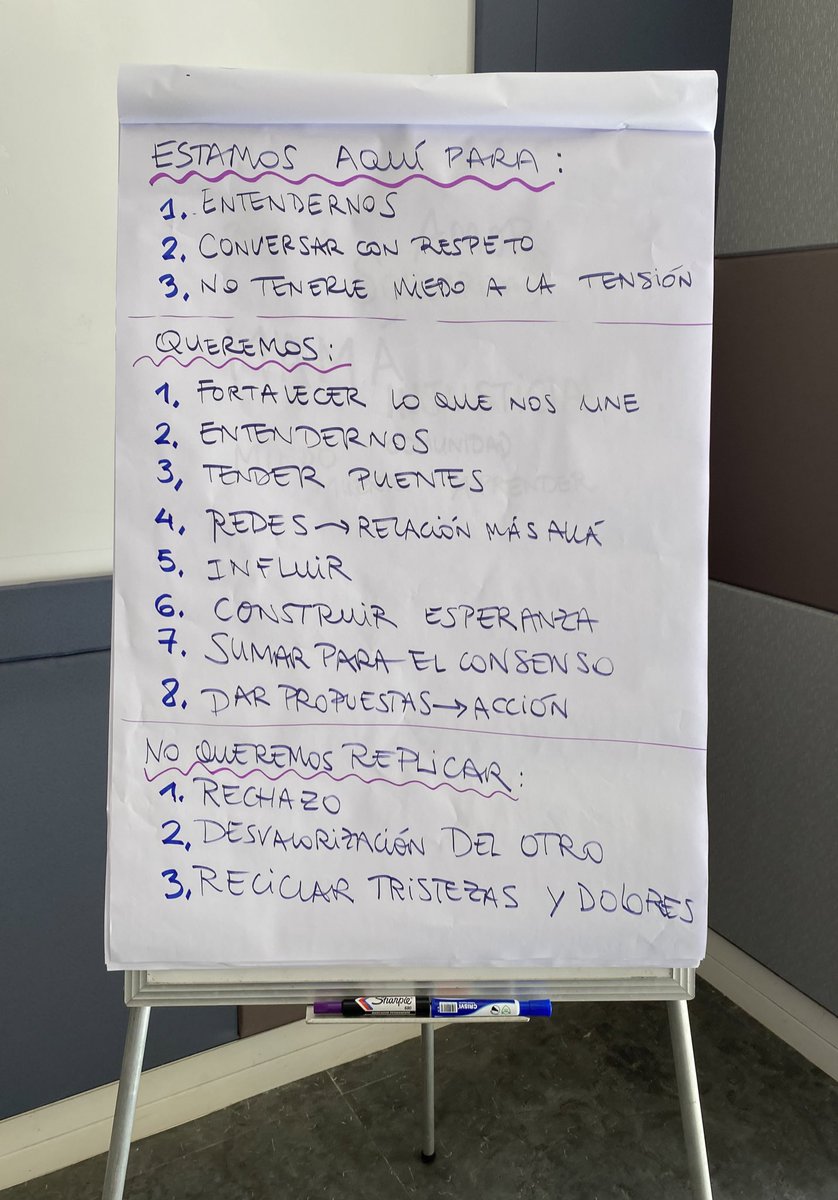 ESTAMOS AQUÍ PARA:
1. ENTENDERNOS
2. CONVERSAR CON RESPETO
3. NO TENERLE MIEDO A LA TENSIÓN
QUEREMOS:
1. FORTALECER LO QUE NOS UNE
2. ENTENDERNOS
3, TENDER PUENTES
4. REDES → RELACIÓN MÁS ALLÁ
5. INFLUIR
6. CONSTRUIR ESPERANZA
7. SUMAR PARA EL CONSENSO
8. DAR PROPUESTAS → ACCIÓN
NO QUEREMOS REPLICAR:
1. RECHAZO
2, DESVALORIZACIÓN DEL OTRO
3, RECICLAR TRISTEZAS Y DOLORES
Sharpie